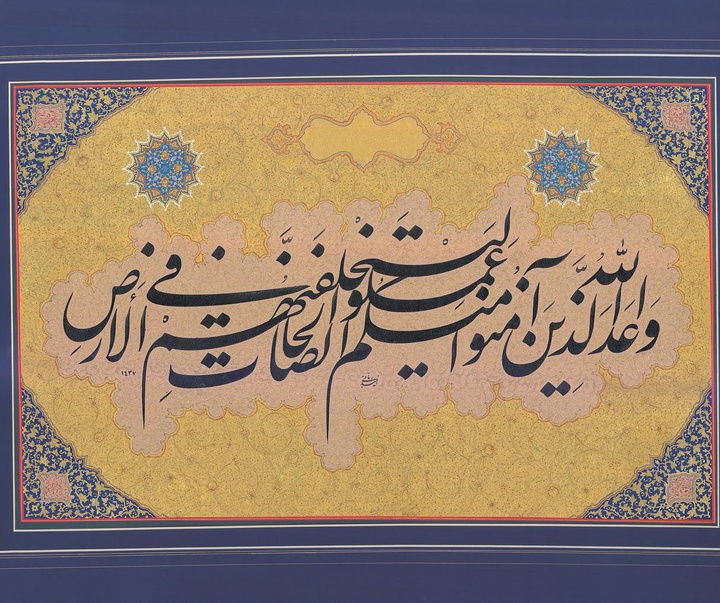 وَعَدَ اللّٰه الَّذینَ آمَنُوا مِنکُم وَ عَمِلُوا الصّالحاتِ لَیَستَخلِفَنَّهُم فِی الأرضِ
١٤٣٧